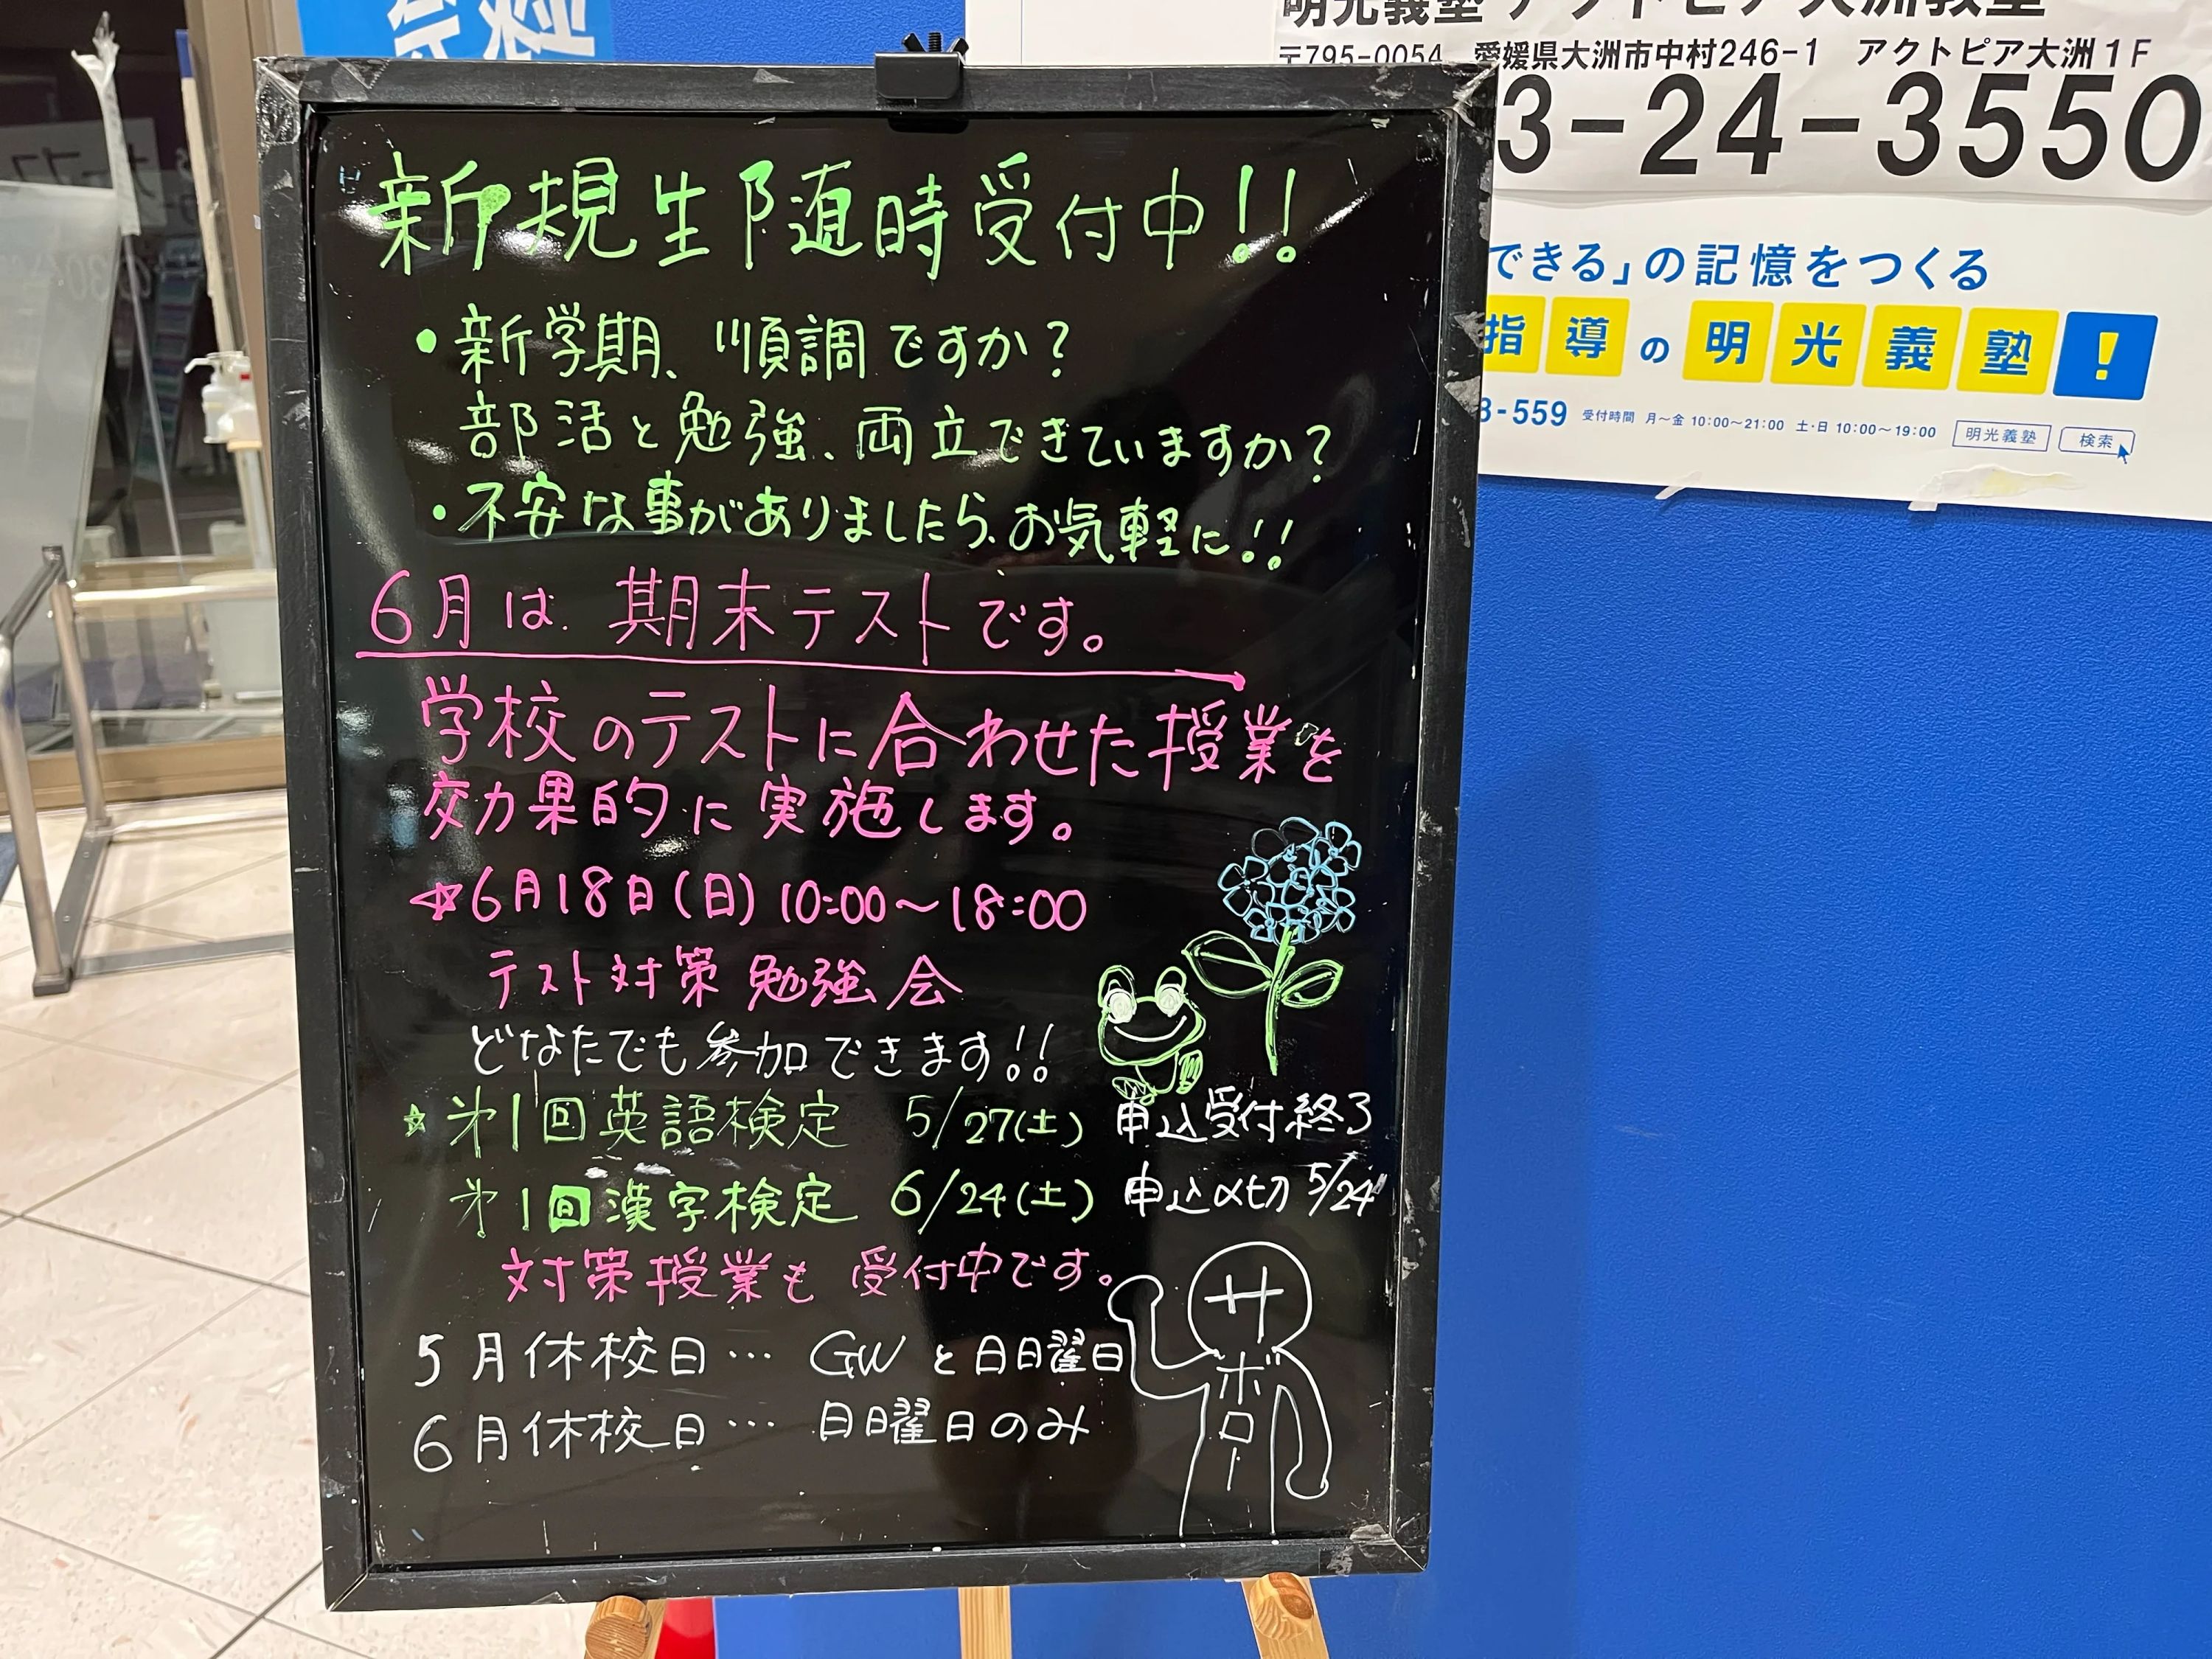 新規生随時受付中!!
・新学期、順調ですか?
部活と勉強、両立できていますか?
・不安な事がありましたら、お気軽に!!
6月は、期末テストです。
学校のテストに合わせた授業を
効果的に実施します。
☆6月18日(日)10:00~18:00
テスト対策 勉強会
どなたでも参加できます!!
☆第1回英語検定 5/27(土) 申込受付終了
第1回漢字検定 6/24(土) 申込〆切 5/24
対策授業も 受付中です。
5月休校日… GWと日曜日
6月休校日… 日曜日のみ
サ
ボ
ロ
ー
明光義塾 アクトピア大洲教室
〒795-0054 愛媛県大洲市中村246-1 アクトピア大洲1F
3-24-3550
できる」の記憶をつくる
指導の明光義塾!
3-559 受付時間 月~金 10:00~21:00 土・日 10:00~19:00 明光義塾 検索